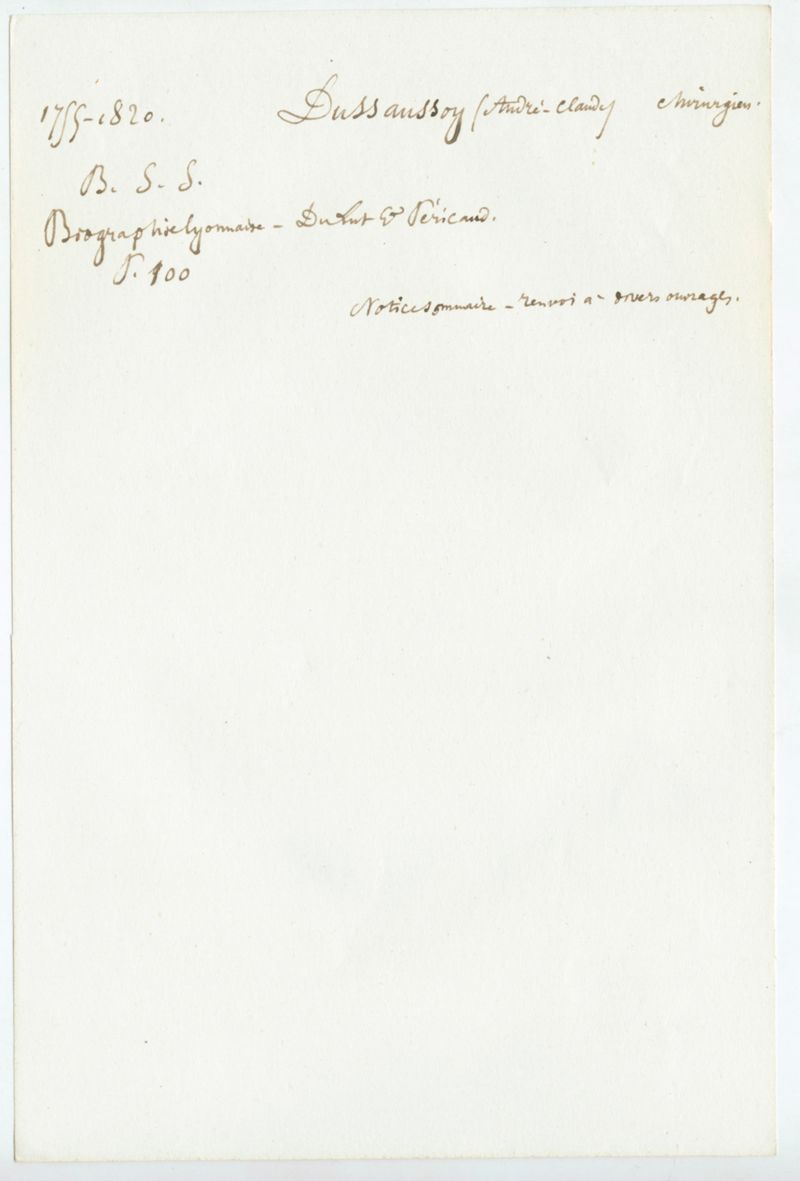 1755-1820. Dussaussoy (André-Claude) chirurgien.
B. S. S.
Biographie lyonnaise - Dulut & Péricaud.
P. 100
Notice sommaire - renvoi à divers ouvrages.